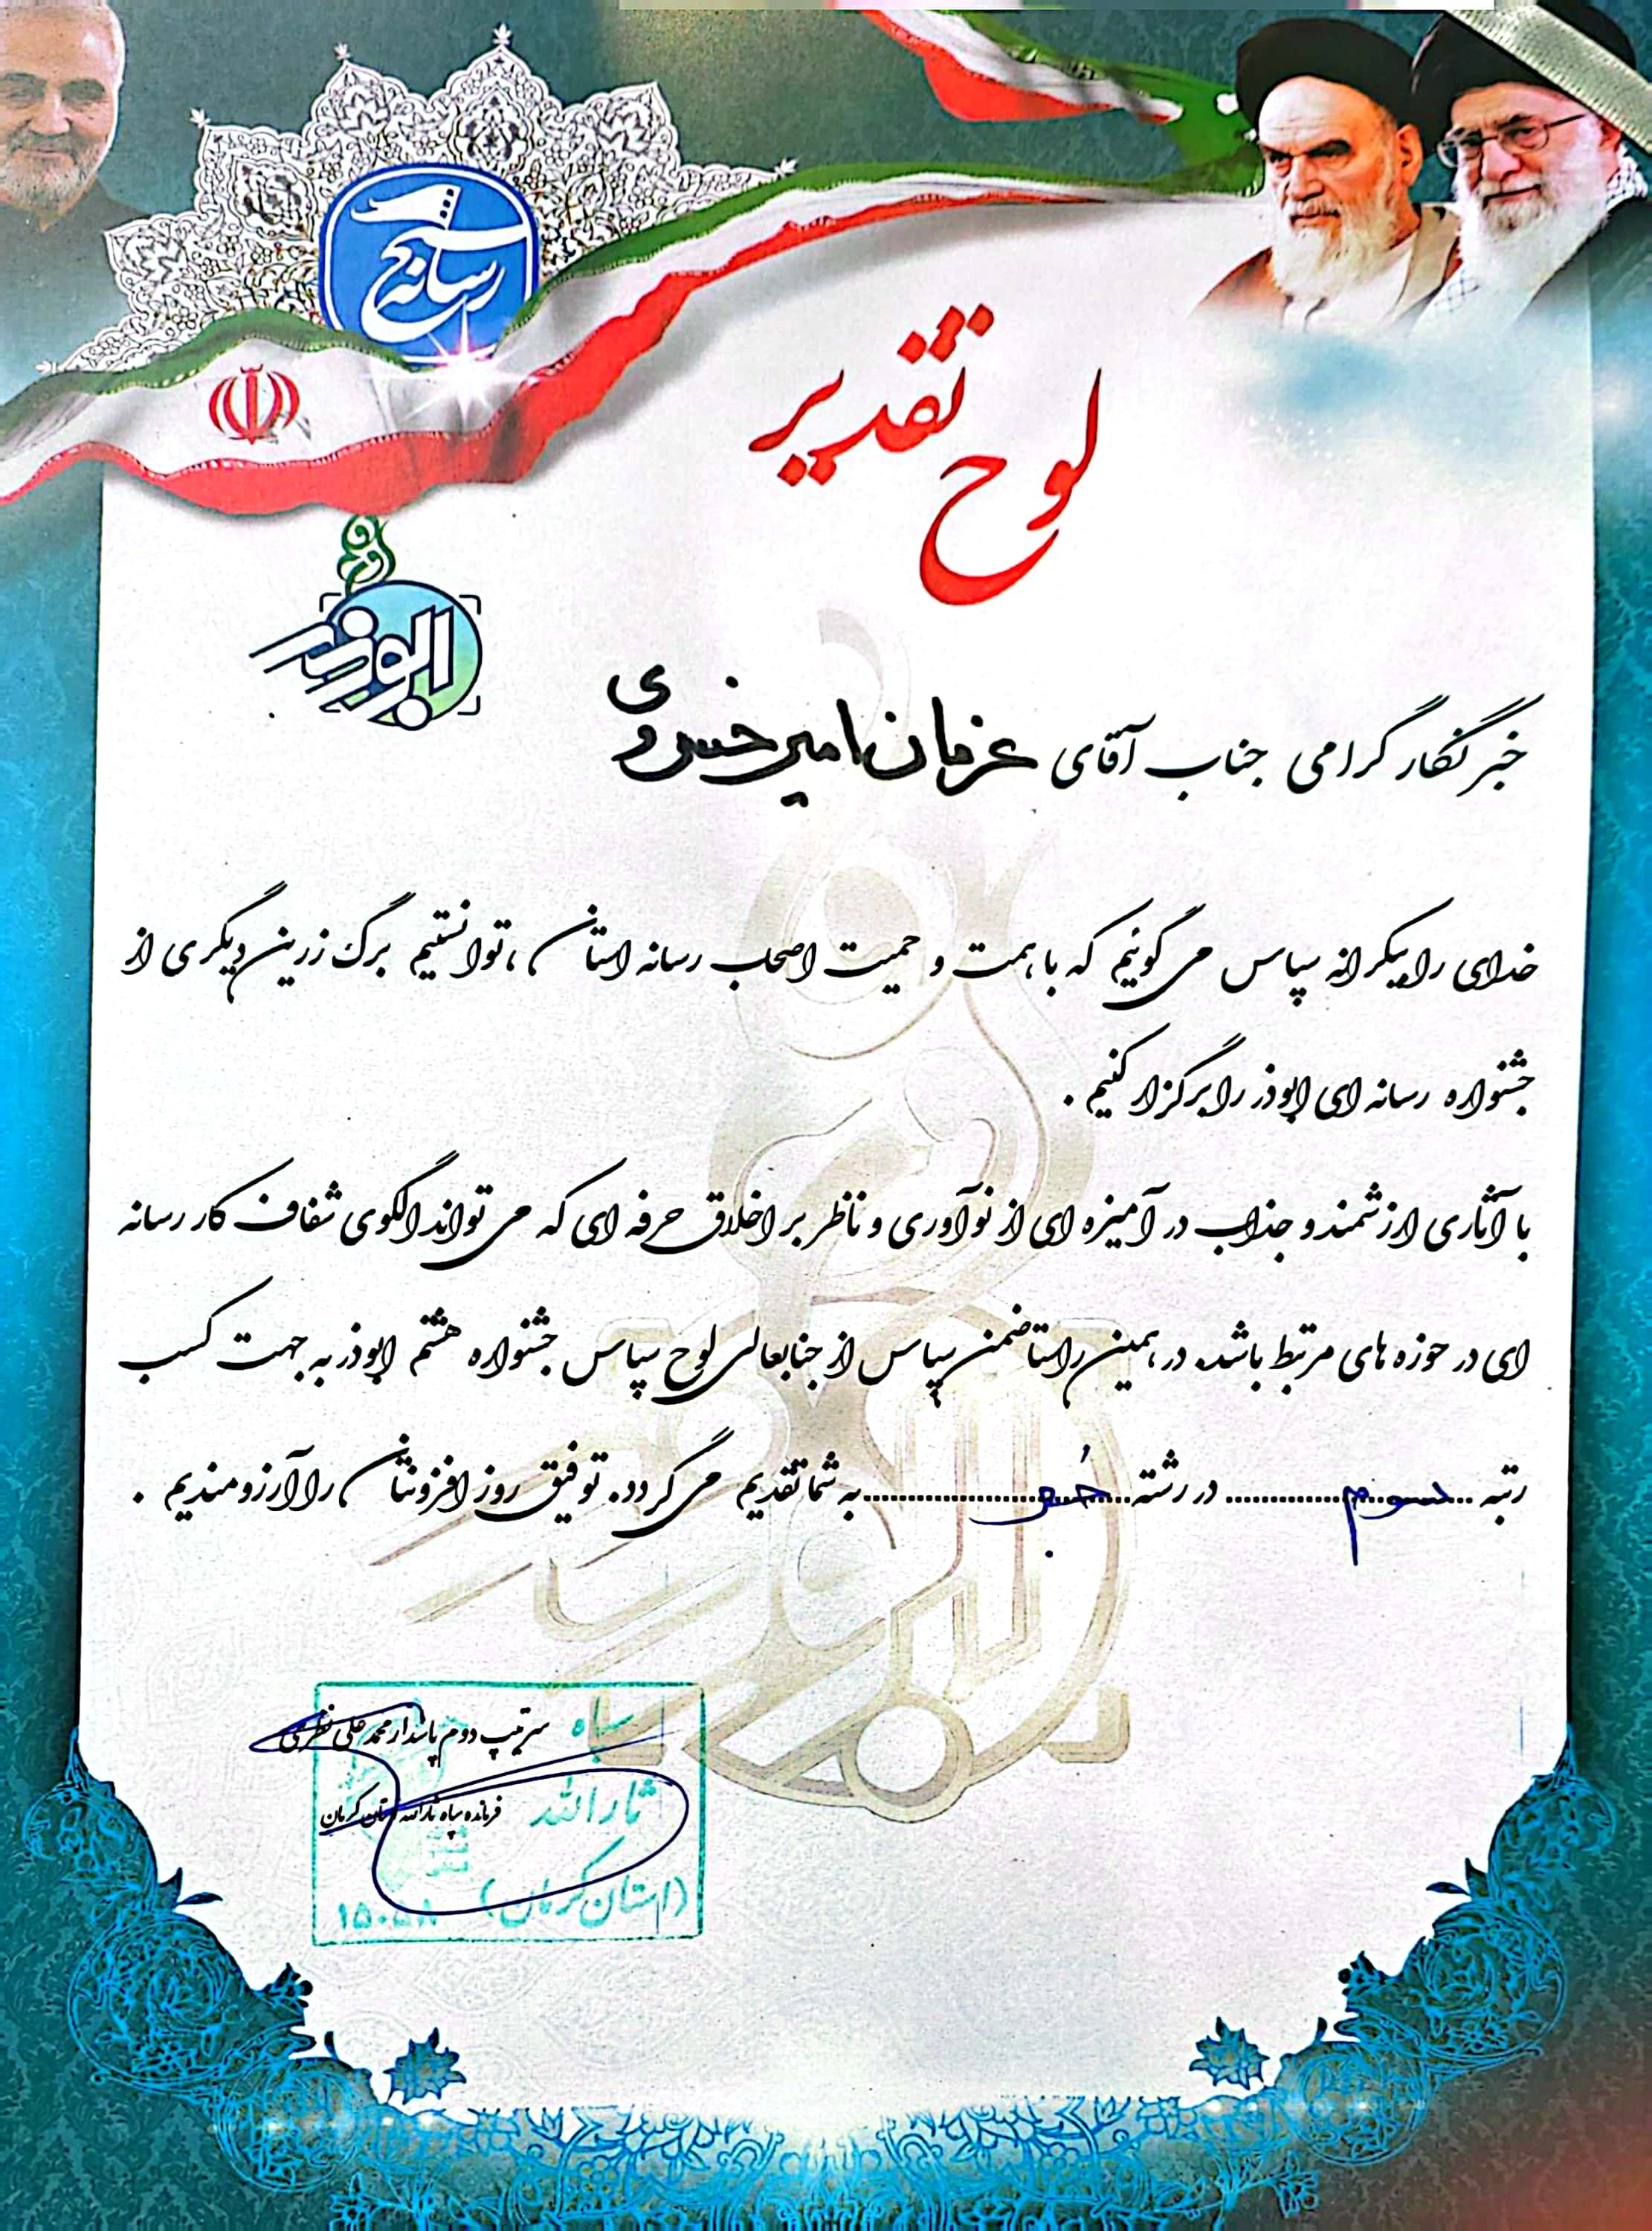 بسیج رسانه
لوح تقدیر
ابوذر
خبرنگار گرامی جناب آقای عرفان امیرخسروی
خدای را بیکرانه سپاس می گوئیم که با همت و حمیت اصحاب رسانه استان ، توانستیم برگ زرین دیگری از
جشنواره رسانه ای ابوذر را برگزار کنیم .
با آثاری ارزشمند و جذاب در آمیزه ای از نوآوری و ناظر بر اخلاق حرفه ای که می تواند الگوی شفاف کار رسانه
ای در حوزه های مرتبط باشد. در همین راستا ضمن سپاس از جنابعالی لوح سپاس جشنواره هشتم ابوذر به جهت کسب
رتبه سوم در رشته خبر به شما تقدیم می گردد. توفیق روز افزونتان را آرزومندیم .
سپاه
سرتیپ دوم پاسدار محمد علی نظری
ثارالله
فرمانده سپاه ثارالله استان کرمان
(استان کرمان)